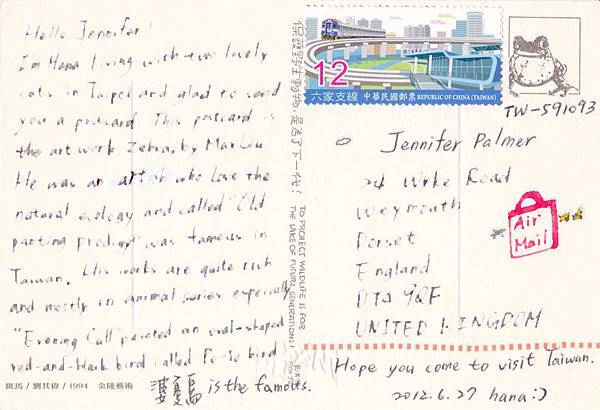 Hello Jennifer!
I'm Hana living with two lovely
cats in Taipei and glad to send
you a postcard. This postcard is
the art work Zebra, by Max Liu
He was an artish who love the
natural ecology and called "Old
panting prodigy" was famous in
Taiwan. His works are quite rich
and mostly in animal series especially
"Evening Call" painted an oval-shaped
red-and-black bird called Po-So bird
婆娑鳥 is the famous.
斑馬 / 劉其偉 / 1994 金陵藝術
保護野生動物是為了下一代!
TO PROTECT WILDLIFE IS FOR
THE SAKE OF FUTURE GENERATIONS!
12
六家支線 中華民國郵票 REPUBLIC OF CHINA (TAIWAN)
TW-591093
Jennifer Palmer
24 Wyke Road
Weymouth
Dorset
England
DT4 9QF
UNITED KINGDOM
Air
Mail
Hope you come to visit Taiwan.
2012.6.27 hana:)